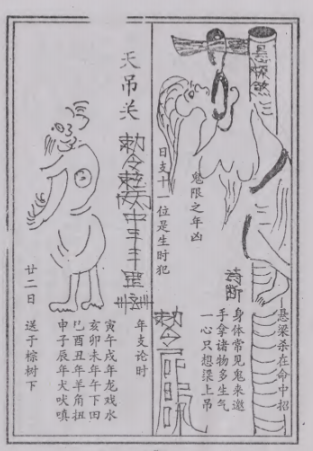 悬梁煞
鬼限之年凶
日支十一位是生时犯
诗断
悬梁杀在命中招
身体常见鬼来邀
手拿诸物多生气
一心只想梁上吊
敕令
天吊关
敕令
年支论时
寅午戌年龙戏水
亥卯未年午下田
巳酉丑年羊角扭
申子辰年犬吠嗔
廿二日 送于棕树下